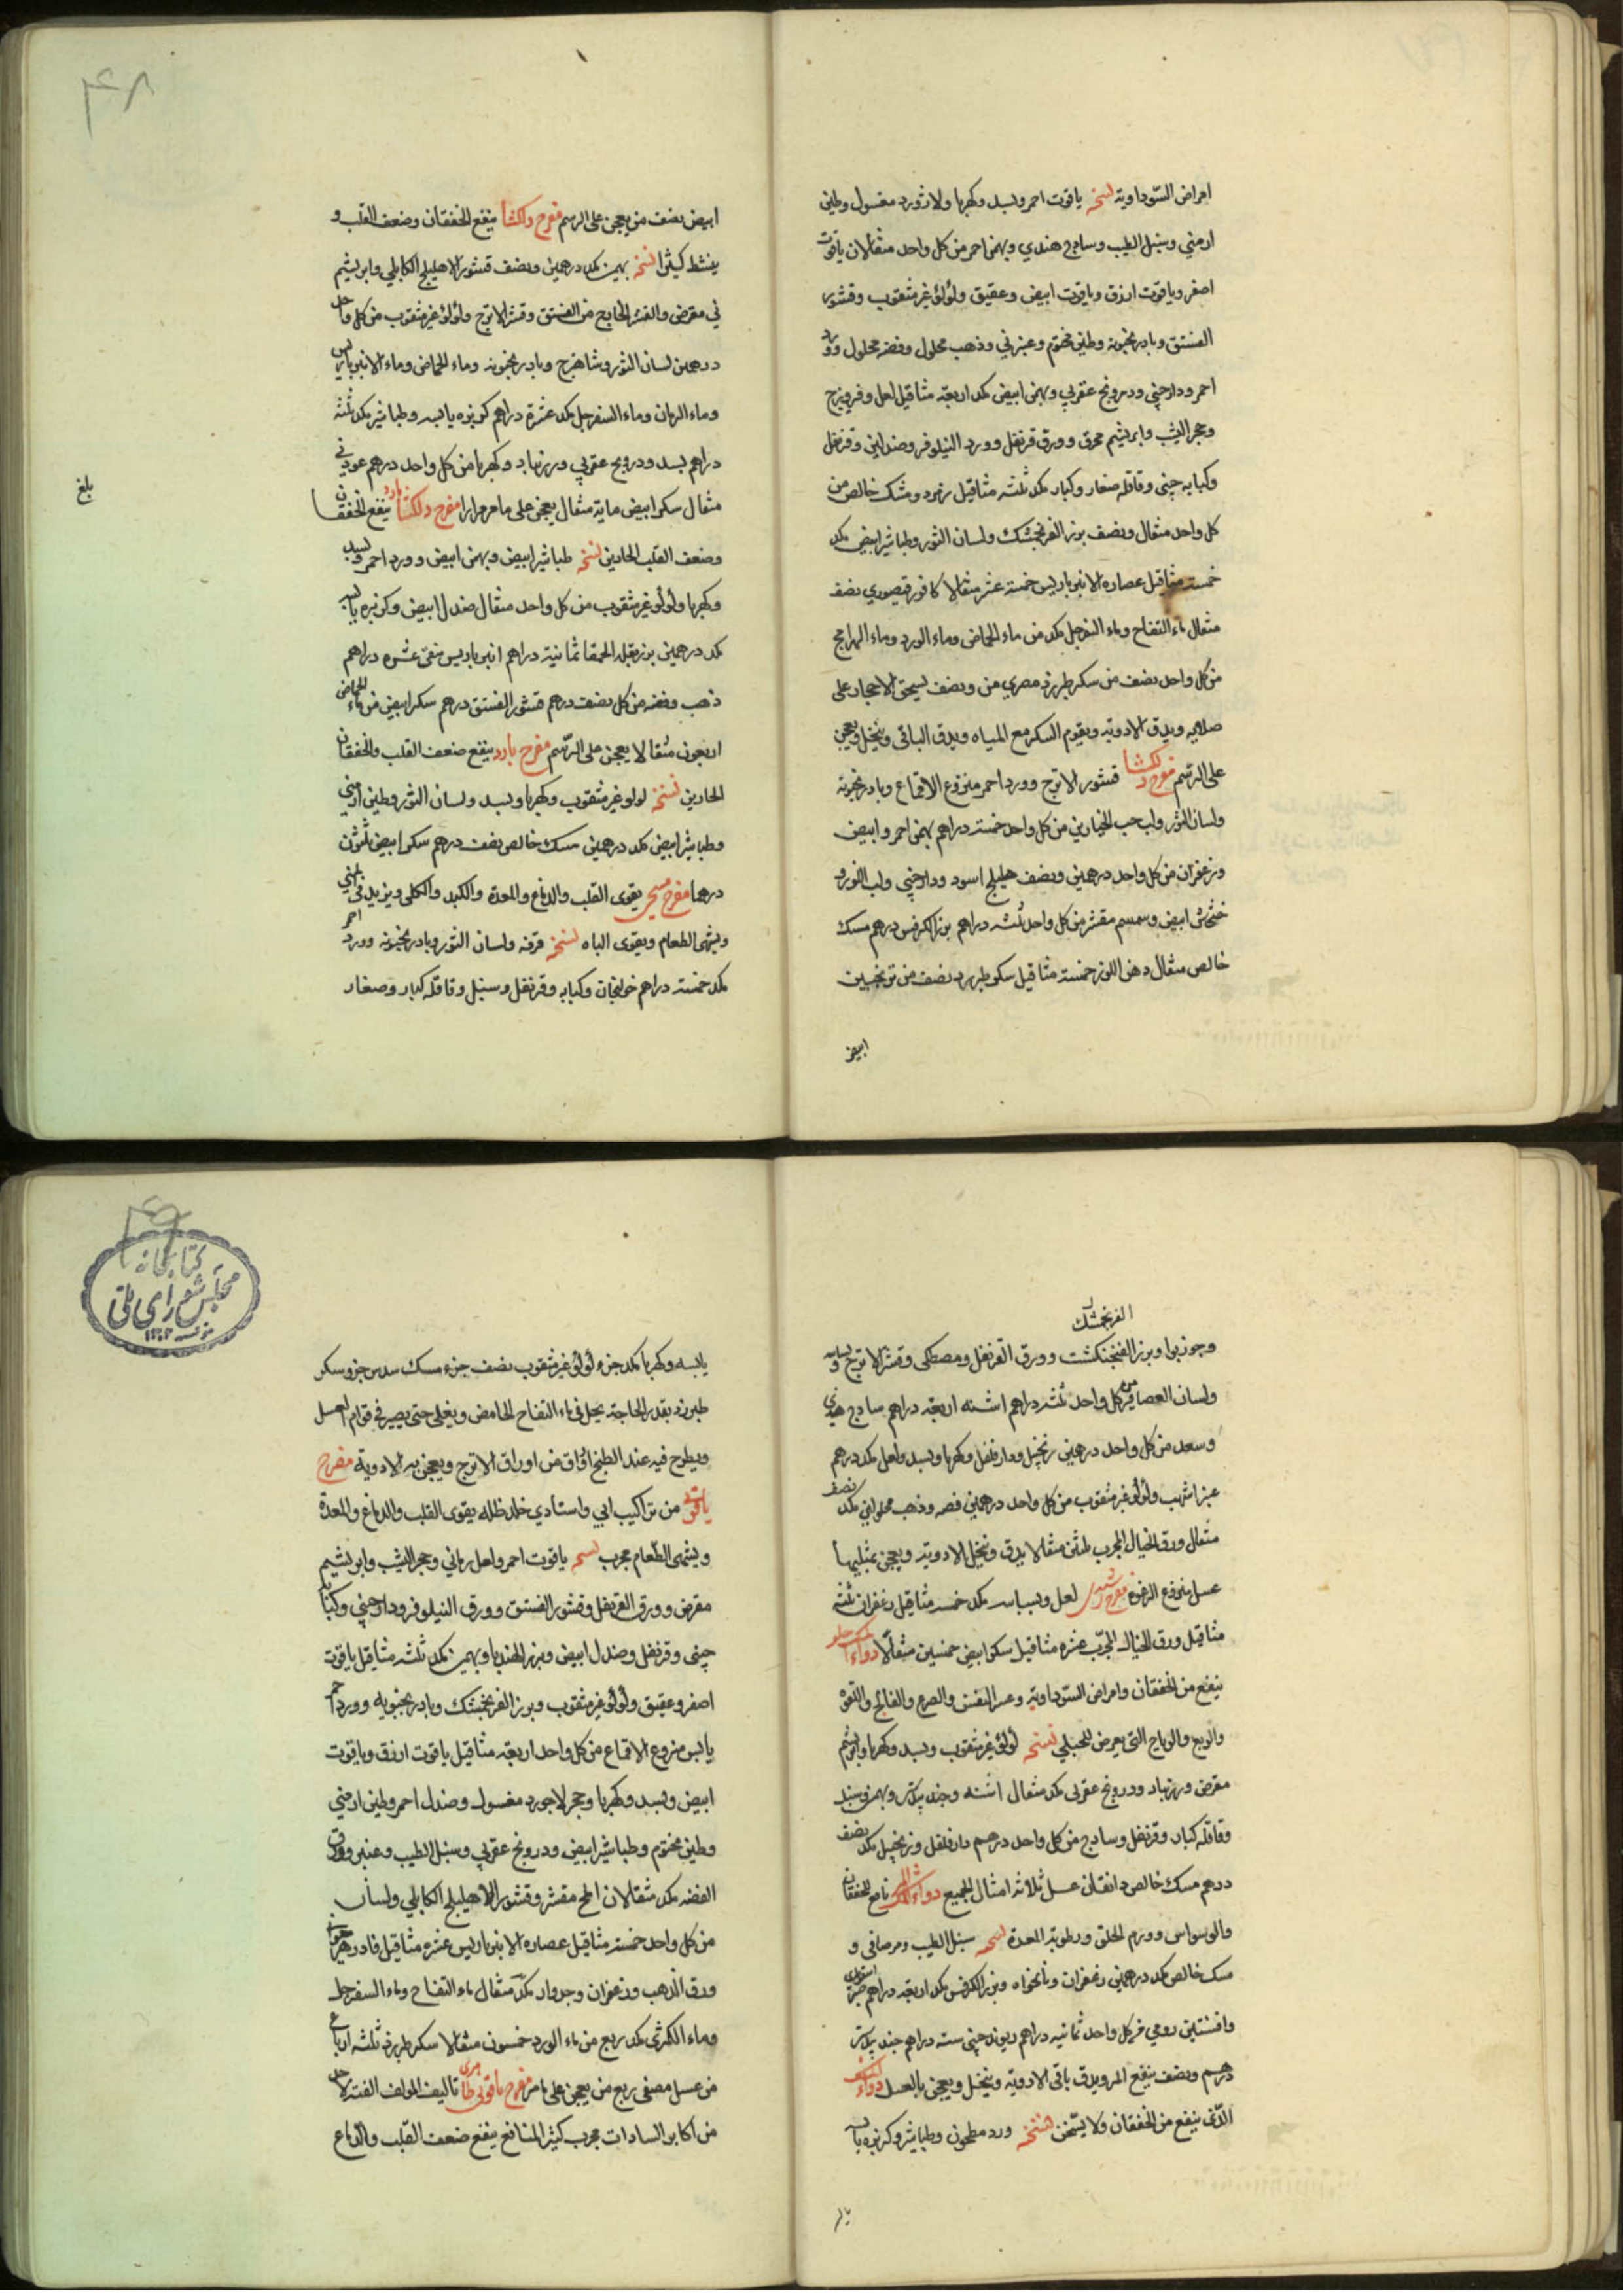 امراض السّوداوية نسخه ياقوت احمر وبسد وكهربا ولاژورد مغسول وطين
ارمني وسنبل الطيب وساذج هندي وبهمن احمر من كل واحد مثقالان ياقوت
اصفر وياقوت ازرق وياقوت ابيض وعقيق ولؤلؤ غير مثقوب وقشور
الفستق وبادرنجبويه وطين مختوم وعنبر ني وذهب محلول وفضه محلول وورد
احمر ودارچيني ودرونج عقربي وبهمن ابيض مكد اربعة مثاقيل لعل وفيروزج
وحجر اليشب وابريشم محرق وورق قرنفل وورد النيلوفر وصندلين وقرنفل
وكبابه چيني وقاقله صغار وكبار مكد ثلثه مثاقيل زمرد ومشك خالص من
كل واحد مثقال ونصف بزر الفرنجمشك ولسان الثور وطباشير ابيض مكد
خمسة مثاقيل عصاره الانبرباريس خمسة عشر مثقالا كافور قيصوري نصف
مثقال ماء التفاح وماء السفرجل مكد من ماء الحماض وماء الورد وماء
من كل واحد نصف من سكر طبرزد مصري من ونصف يسحق الاحجار على
صلايه ويدق الادوية ويقوم السكر مع المياه ويدق الباقي وينخل ويعجن
على الرسم مفرح دلكشا قشور الاترج وورد احمر منزوع الاقماع وبادرنجبويه
ولسان الثور ولب حب الخيارين من كل واحد خمسة دراهم بهمن احمر وابيض
وزعفران من كل واحد درهمين ونصف هليلج اسود ودارچيني ولب اللوز و
خشخاش ابيض وسمسم مقشر من كل واحد ثلثه دراهم بزر الكرفس درهم مسك
خالص مثقال دهن اللوز خمسة مثاقيل سكر طبرزد نصف من ترنجبين
ابيض
٤٨
ابيض نصف من يعجن على الرسم مفرح دلكشا ينفع الخفقان وضعف القلب و
ينشط كثيرا نسخه بهمن مكد درهمين ونصف قشور الاهليلج الكابلي وابريشم
ني مقرض والقشر الخارج من الفستق وقشر الاترج ولؤلؤ غير مثقوب من كل واحد
درهمين لسان الثور وشاهترج وبادرنجبويه وماء الحماض وماء الانبرباريس
وماء الرمان وماء السفرجل مكد عشرة دراهم كزبره يابسه وطباشير مكد ثلثه
دراهم بسد ودرونج عقربي وزرنباد وكهربا من كل واحد درهم عود ني
مثقال سكر ابيض مايه مثقال يعجن على ما مر مرارا مفرح دلكشا بارد ينفع الخفقان
بلغ
وضعف القلب الحادين نسخه طباشير ابيض وبهمن ابيض وورد احمر وبسد
وكهربا ولؤلؤ غير مثقوب من كل واحد مثقال صندل ابيض وكزبره يابسه
مكد درهمين بزر بقلة الحمقا ثمانية دراهم انبرباريس منقى عشره دراهم
ذهب وفضه من كل نصف درهم قشور الفستق درهم سكر ابيض من ماء الحماض
اربعون مثقالا يعجن على الرسم مفرح بارد ينفع ضعف القلب والخفقان
الحادين نسخه لولو غير مثقوب وكهربا وبسد ولسان الثور وطين ارمني
وطباشير ابيض مكد درهمين مسك خالص نصف درهم سكر ابيض ثلثون
درهما مفرح مسيحي يقوى القلب والدماغ والمعدة والكبد والكلى ويزيد في المني
ويشهى الطعام ويقوى الباه نسخه قرفه ولسان الثور وبادرنجبويه وورد احمر
مكد خمسة دراهم خولنجان وكبابه وقرنفل وسنبل وقاقله كبار وصغار
الفرنجمشك
وجوزبوا وبزر الفنجنكشت وورق القرنفل ومصطكى وقشر الاترج وبسباسه
ولسان العصافير من كل واحد ثلثه دراهم اشنه اربعة دراهم ساذج هندي
وسعد من كل واحد درهمين زنجبيل ودارفلفل وكهربا وبسد ولعل مكد درهم
عنبر اشهب ولؤلؤ غير مثقوب من كل واحد درهمين فضه وذهب محلولين مكد نصف
مثقال ورق الخيال المجرب ثلثين مثقالا يدق وينخل الادوية ويعجن بمثليها
عسل منزوع الرغوة مفرح لعل وبسباسه مكد خمسه مثاقيل زعفران ثلثه
مثاقيل ورق الخيال المجرّب عشره مثاقيل سكر ابيض خمسين مثقالا دواء المسك حلو
ينفع من الخفقان وامراض السّوداوية وعسر النفس والصرع والفالج واللقوة
والربع والرياح التى يعرض للحبلي نسخه لؤلؤ غير مثقوب وبسد وكهربا وابريشم
مقرض وزرنباد ودرونج عقربي مكد مثقال اشنه وجندبيدستر وبهمن وسنبل
وقاقله كبار وقرنفل وساذج من كل واحد درهم دارفلفل وزنجبيل مكد نصف
درهم مسك خالص دانقان عسل ثلاثه امثال الجميع دواء المسك المر نافع للخفقان
والوسواس وورم الحلق ورطوبة المعدة نسخه سنبل الطيب ومرصافي و
مسك خالص مكد درهمين زعفران ونانخواه وبزر الكرفس مكد اربعه دراهم صبر اسقوطري
وافسنتين رومي من كل واحد ثمانيه دراهم ريوند چيني سته دراهم جندبيدستر
درهم ونصف ينقع المر ويدق باقى الادوية وينخل ويعجن بالعسل دواء المسك
الّذى ينفع من الخفقان ولا يسّخن نسخه ورد مطحون وطباشير وكزبره يابسه
٤٩
كتابخانه
مجلس شوراى ملّى
يابسه وكهربا مكد جزء لؤلؤ غير مثقوب نصف جزء مسك سدس جزو سكر
طبرزد بقدر الحاجة يحل في ماء التفاح الحامض ويغلى حتى يصير في قوام العسل
ويطرح فيه عند الطبخ اوراق من اوراق الاترج ويعجن به الادوية مفرح
ياقوتي من تراكيب ابي واستادي خلد ظله يقوى القلب والدماغ والمعدة
ويشهى الطّعام مجرب نسخه ياقوت احمر ولعل رماني وحجر اليشب وابريشيم
مقرض وورق القرنفل وقشور الفستق وورق النيلوفر ودارچيني وكبابه
چيني وقرنفل وصندل ابيض وبزر الهندبا وبهمن مكد ثلثه مثاقيل ياقوت
اصفر وعقيق ولؤلؤ غير مثقوب وبزر الفرنجمشك وبادرنجبويه وورد احمر
يابس منزوع الاقماع من كل واحد اربعة مثاقيل ياقوت ازرق وياقوت
ابيض وبسد وكهربا وحجر لاجورد مغسول وصندل احمر وطين ارمني
وطين مختوم وطباشير ابيض ودرونج عقربي وسنبل الطيب وعنبر وورق
الفضه مكد مثقالان املج مقشر وقشور الاهليلج الكابلي ولسان
من كل واحد خمسة مثاقيل عصاره الانبرباريس عشره مثاقيل فادزهر حيواني
ورق الذهب وزعفران وجدوار مكد مثقال ماء التفاح وماء السفرجل
وماء الكمثرى مكد ربع من ماء الورد خمسون مثقالا سكر طبرزد ثلثه ارباع
من عسل مصفى ربع من يعجن على ما مر مفرح ياقوتي تاليف المولف الفته لاحد
من اكابر السادات مجرب كثير المنافع ينفع ضعف القلب والدماغ